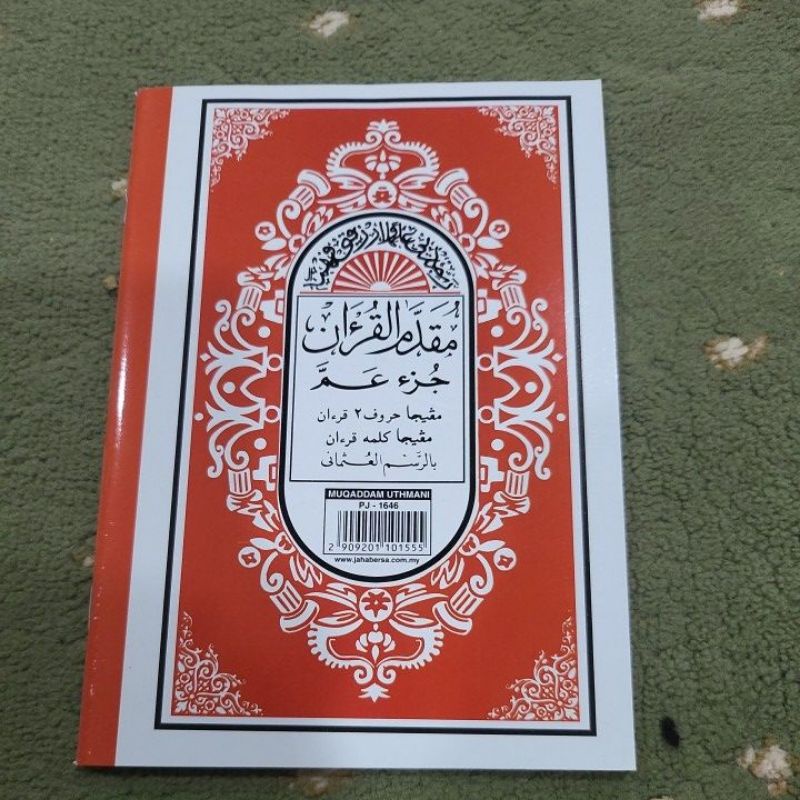 مُقَدَّم القُرْءَان
جُزء عَمَّ
مڠيجا حروف٢ قرءان
مڠيجا كلمه قرءان
بالرَّسْم العُثمانى
MUQADDAM UTHMANI
PJ - 1646
2 909201 101555
www.jahabersa.com.my